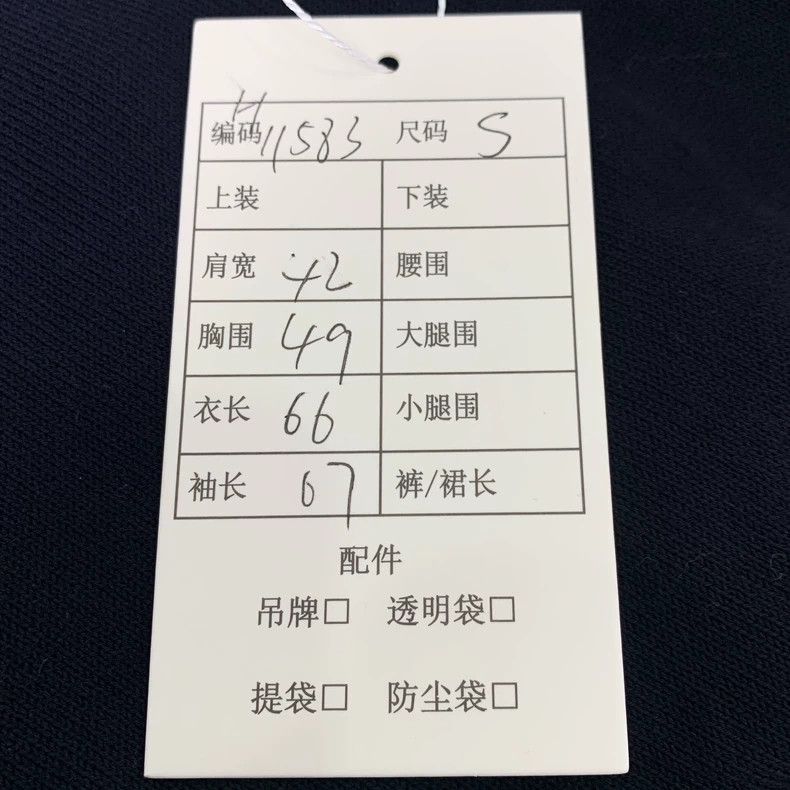 编码 H11583 尺码 S
上装 下装
肩宽 42 腰围
胸围 49 大腿围
衣长 66 小腿围
袖长 67 裤/裙长
配件
吊牌□ 透明袋□
提袋□ 防尘袋□